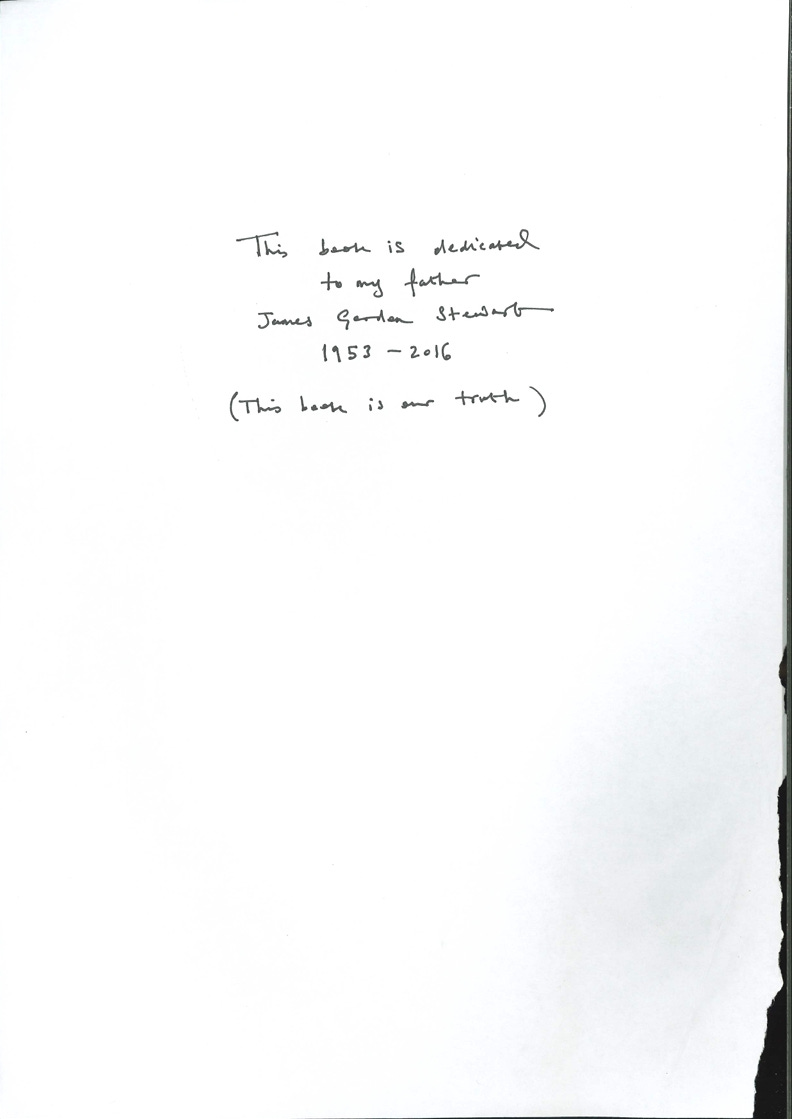 This book is dedicated
to my father
James Gordon Stewart
1953 – 2016
(This book is our truth)